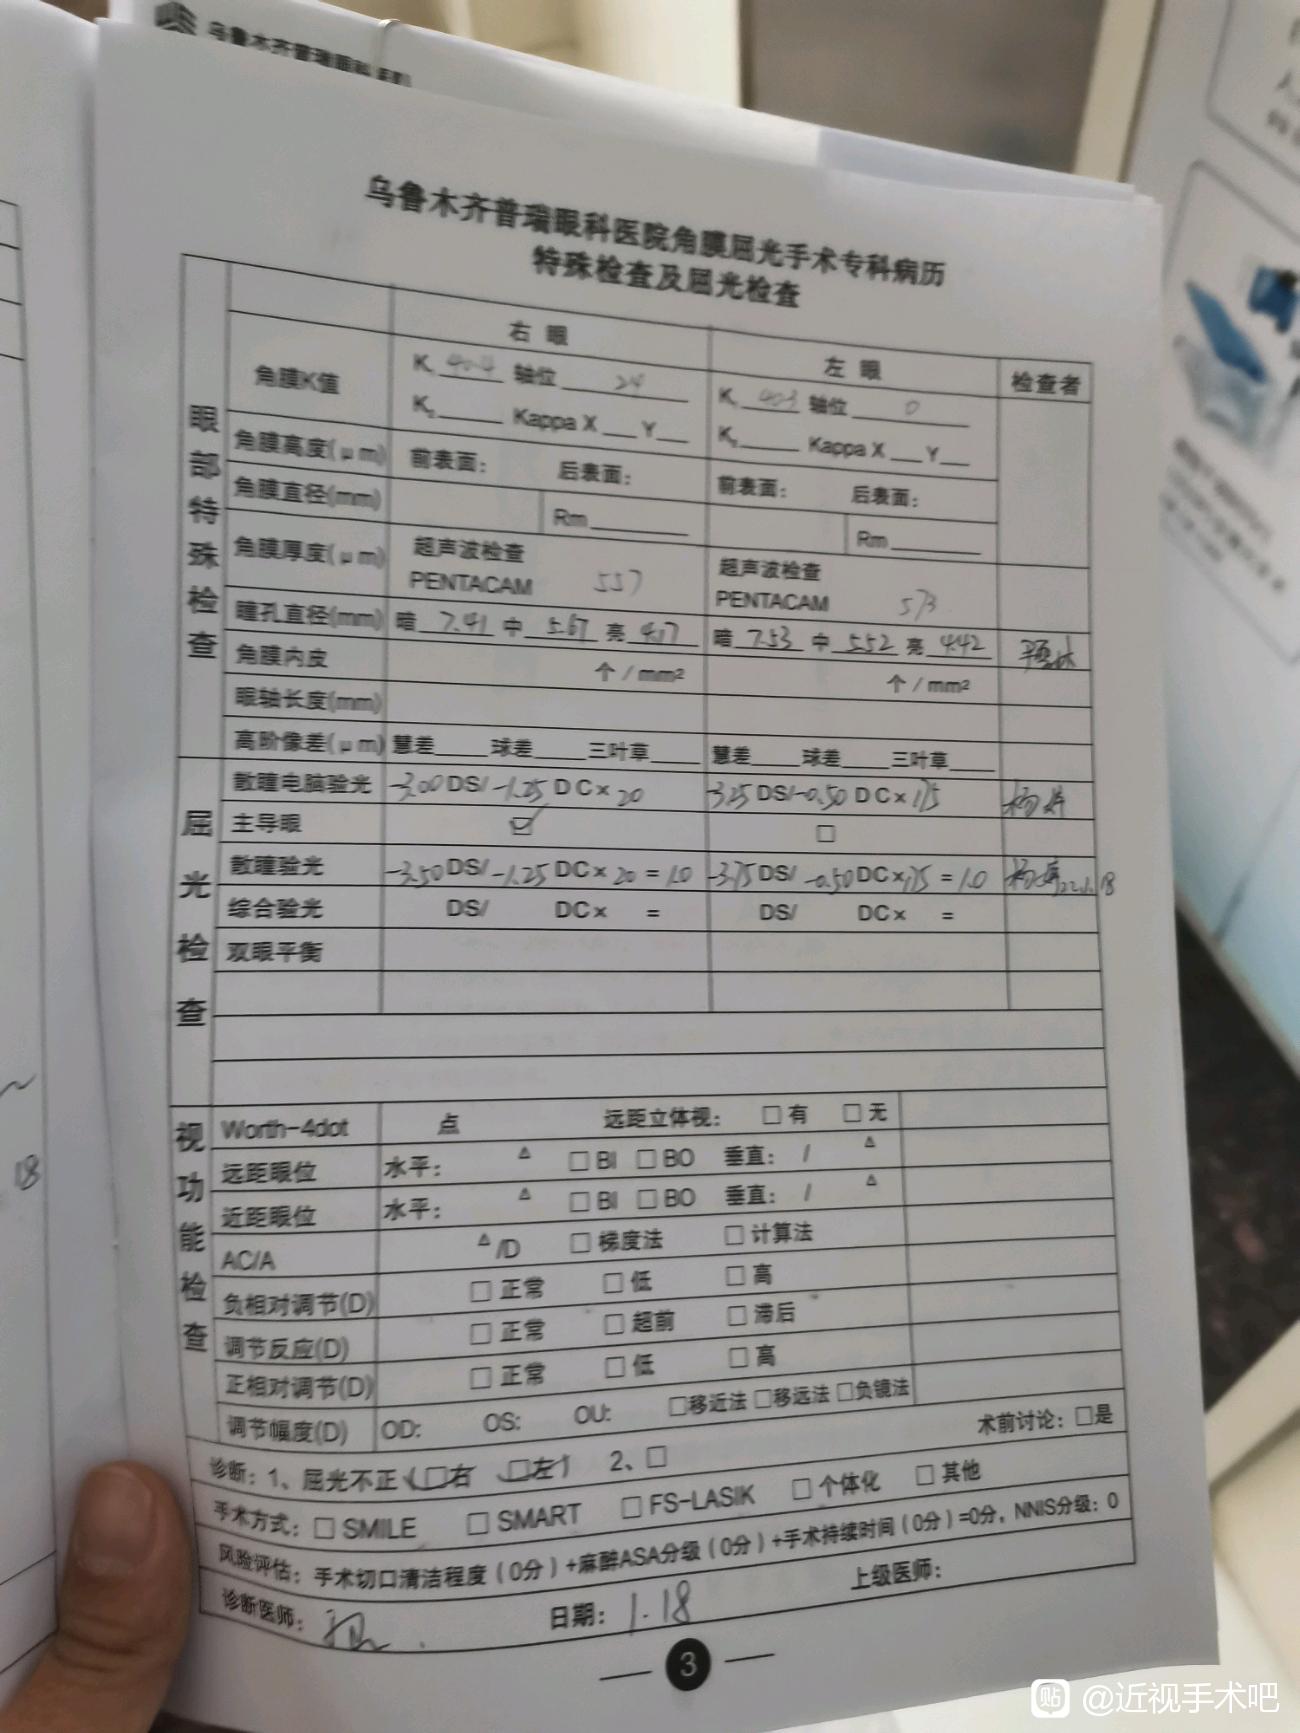 乌鲁木齐普瑞眼科医院
乌鲁木齐普瑞眼科医院角膜屈光手术专科病历
特殊检查及屈光检查
右 眼 左 眼 检查者
眼部特殊检查
角膜K值 K₁ 40.4 轴位 24 K₁ 40.3 轴位 0
K₂ Kappa X Y K₂ Kappa X Y
角膜高度(μm) 前表面: 后表面: 前表面: 后表面:
角膜直径(mm) Rm Rm
角膜厚度(μm) 超声波检查 超声波检查
PENTACAM 557 PENTACAM 573
瞳孔直径(mm) 暗 7.41 中 5.67 亮 4.17 暗 7.53 中 5.52 亮 4.42
角膜内皮 个/mm² 个/mm²
眼轴长度(mm)
高阶像差(μm) 慧差 球差 三叶草 慧差 球差 三叶草
屈光检查
散瞳电脑验光 -3.00 DS/ -1.25 DC× 20 -3.25 DS/ -0.50 DC× 175
主导眼 ☑ □
散瞳验光 -3.50 DS/ -1.25 DC× 20 = 1.0 -3.75 DS/ -0.50 DC× 175 = 1.0
综合验光 DS/ DC× = DS/ DC× =
双眼平衡
视功能检查
Worth-4dot 点 远距立体视: □有 □无
远距眼位 水平: △ □BI □BO 垂直: / △
近距眼位 水平: △ □BI □BO 垂直: / △
AC/A △/D □梯度法 □计算法
负相对调节(D) □正常 □低 □高
调节反应(D) □正常 □超前 □滞后
正相对调节(D) □正常 □低 □高
调节幅度(D) OD: OS: OU: □移近法 □移远法 □负镜法
术前讨论: □是
诊断: 1、屈光不正(□右 □左) 2、□
手术方式: □SMILE □SMART □FS-LASIK □个体化 □其他
风险评估: 手术切口清洁程度(0分)+麻醉ASA分级(0分)+手术持续时间(0分)=0分，NNIS分级: 0
诊断医师: 日期: 1.18 上级医师:
3
18
贴 @近视手术吧